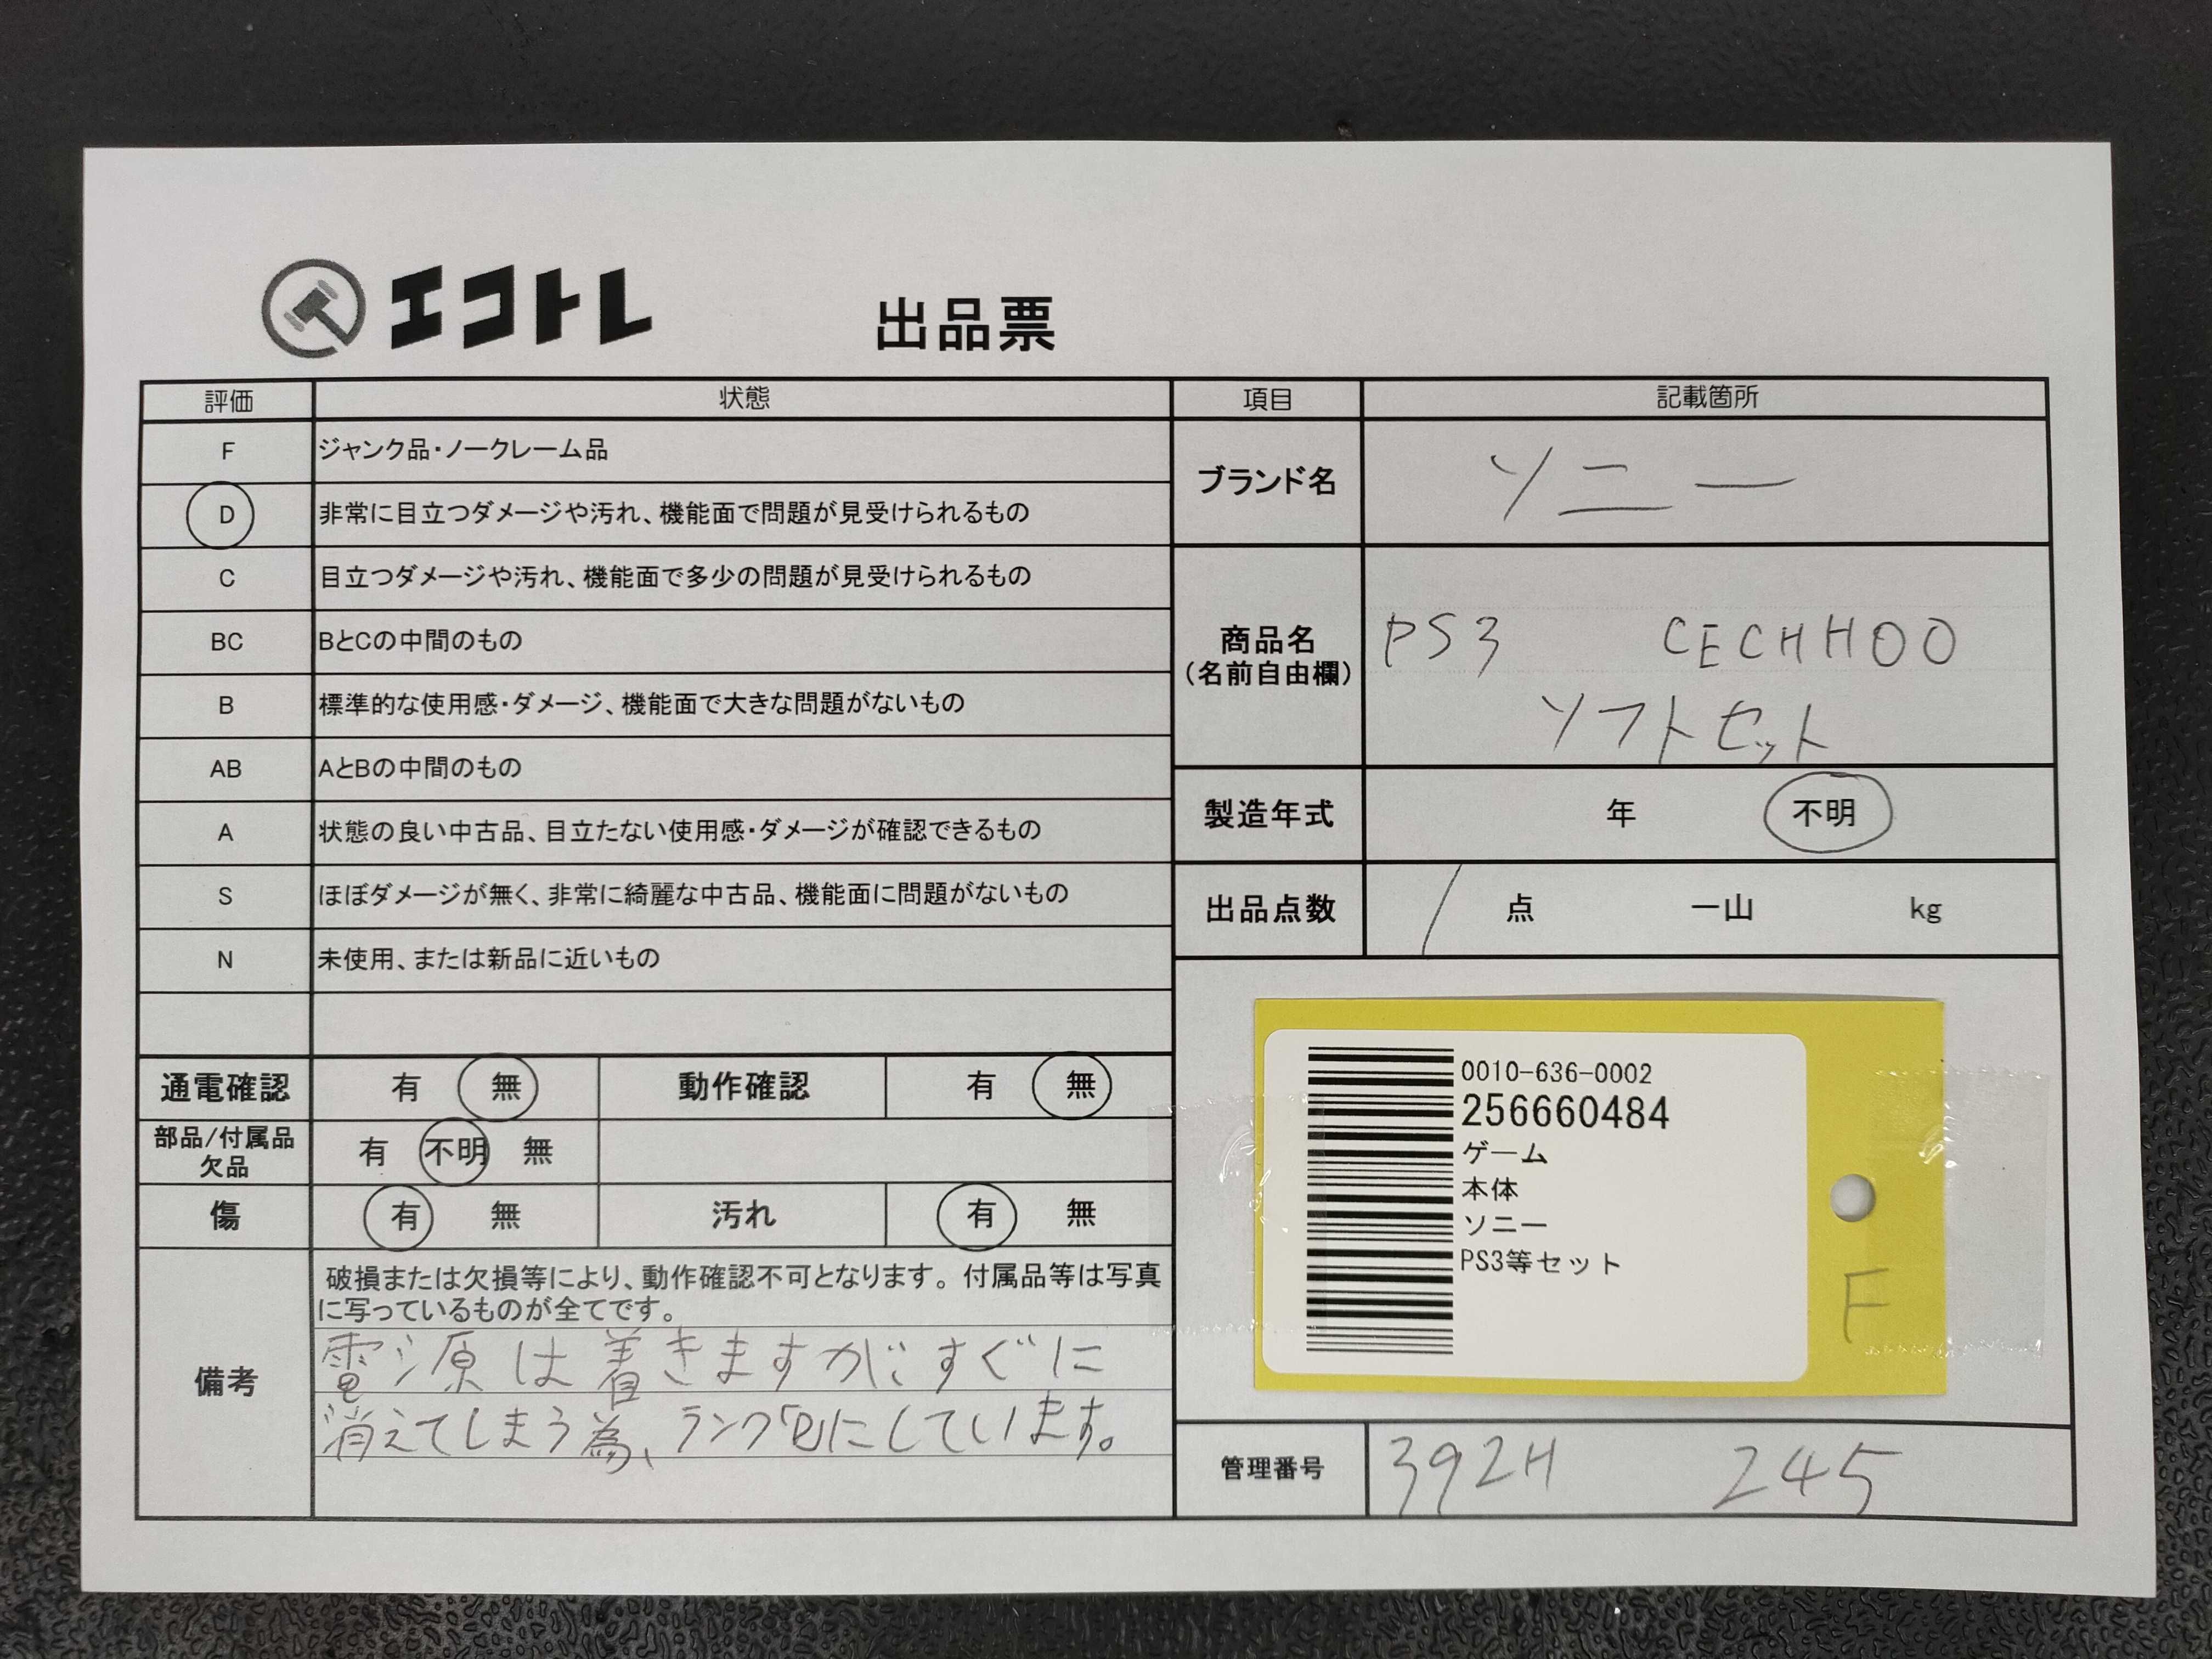 エコトレ
出品票
評価 状態
F ジャンク品・ノークレーム品
D 非常に目立つダメージや汚れ、機能面で問題が見受けられるもの
C 目立つダメージや汚れ、機能面で多少の問題が見受けられるもの
BC BとCの中間のもの
B 標準的な使用感・ダメージ、機能面で大きな問題がないもの
AB AとBの中間のもの
A 状態の良い中古品、目立たない使用感・ダメージが確認できるもの
S ほぼダメージが無く、非常に綺麗な中古品、機能面に問題がないもの
N 未使用、または新品に近いもの
通電確認 有 無 動作確認 有 無
部品/付属品
欠品
有 不明 無
傷 有 無 汚れ 有 無
備考
破損または欠損等により、動作確認不可となります。付属品等は写真
に写っているものが全てです。
電源は着きますがすぐに
消えてしまう為、ランクにしています。
項目 記載箇所
ブランド名 ソニー
商品名
(名前自由欄)
PS3 CECHH00
ソフトセット
製造年式 年 不明
出品点数 1 点 一山 kg
0010-636-0002
256660484
ゲーム
本体
ソニー
PS3等セット
F
管理番号 392H 245